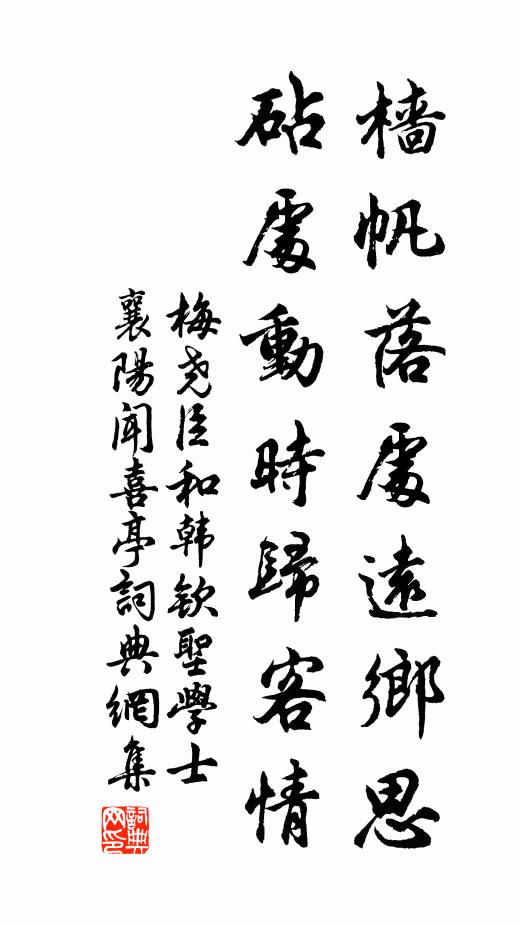 檣帆落處遠鄉思
砧處動時歸客情
梅尧臣和韩欽聖學士
襄陽聞喜亭詞典網集
詞典网印